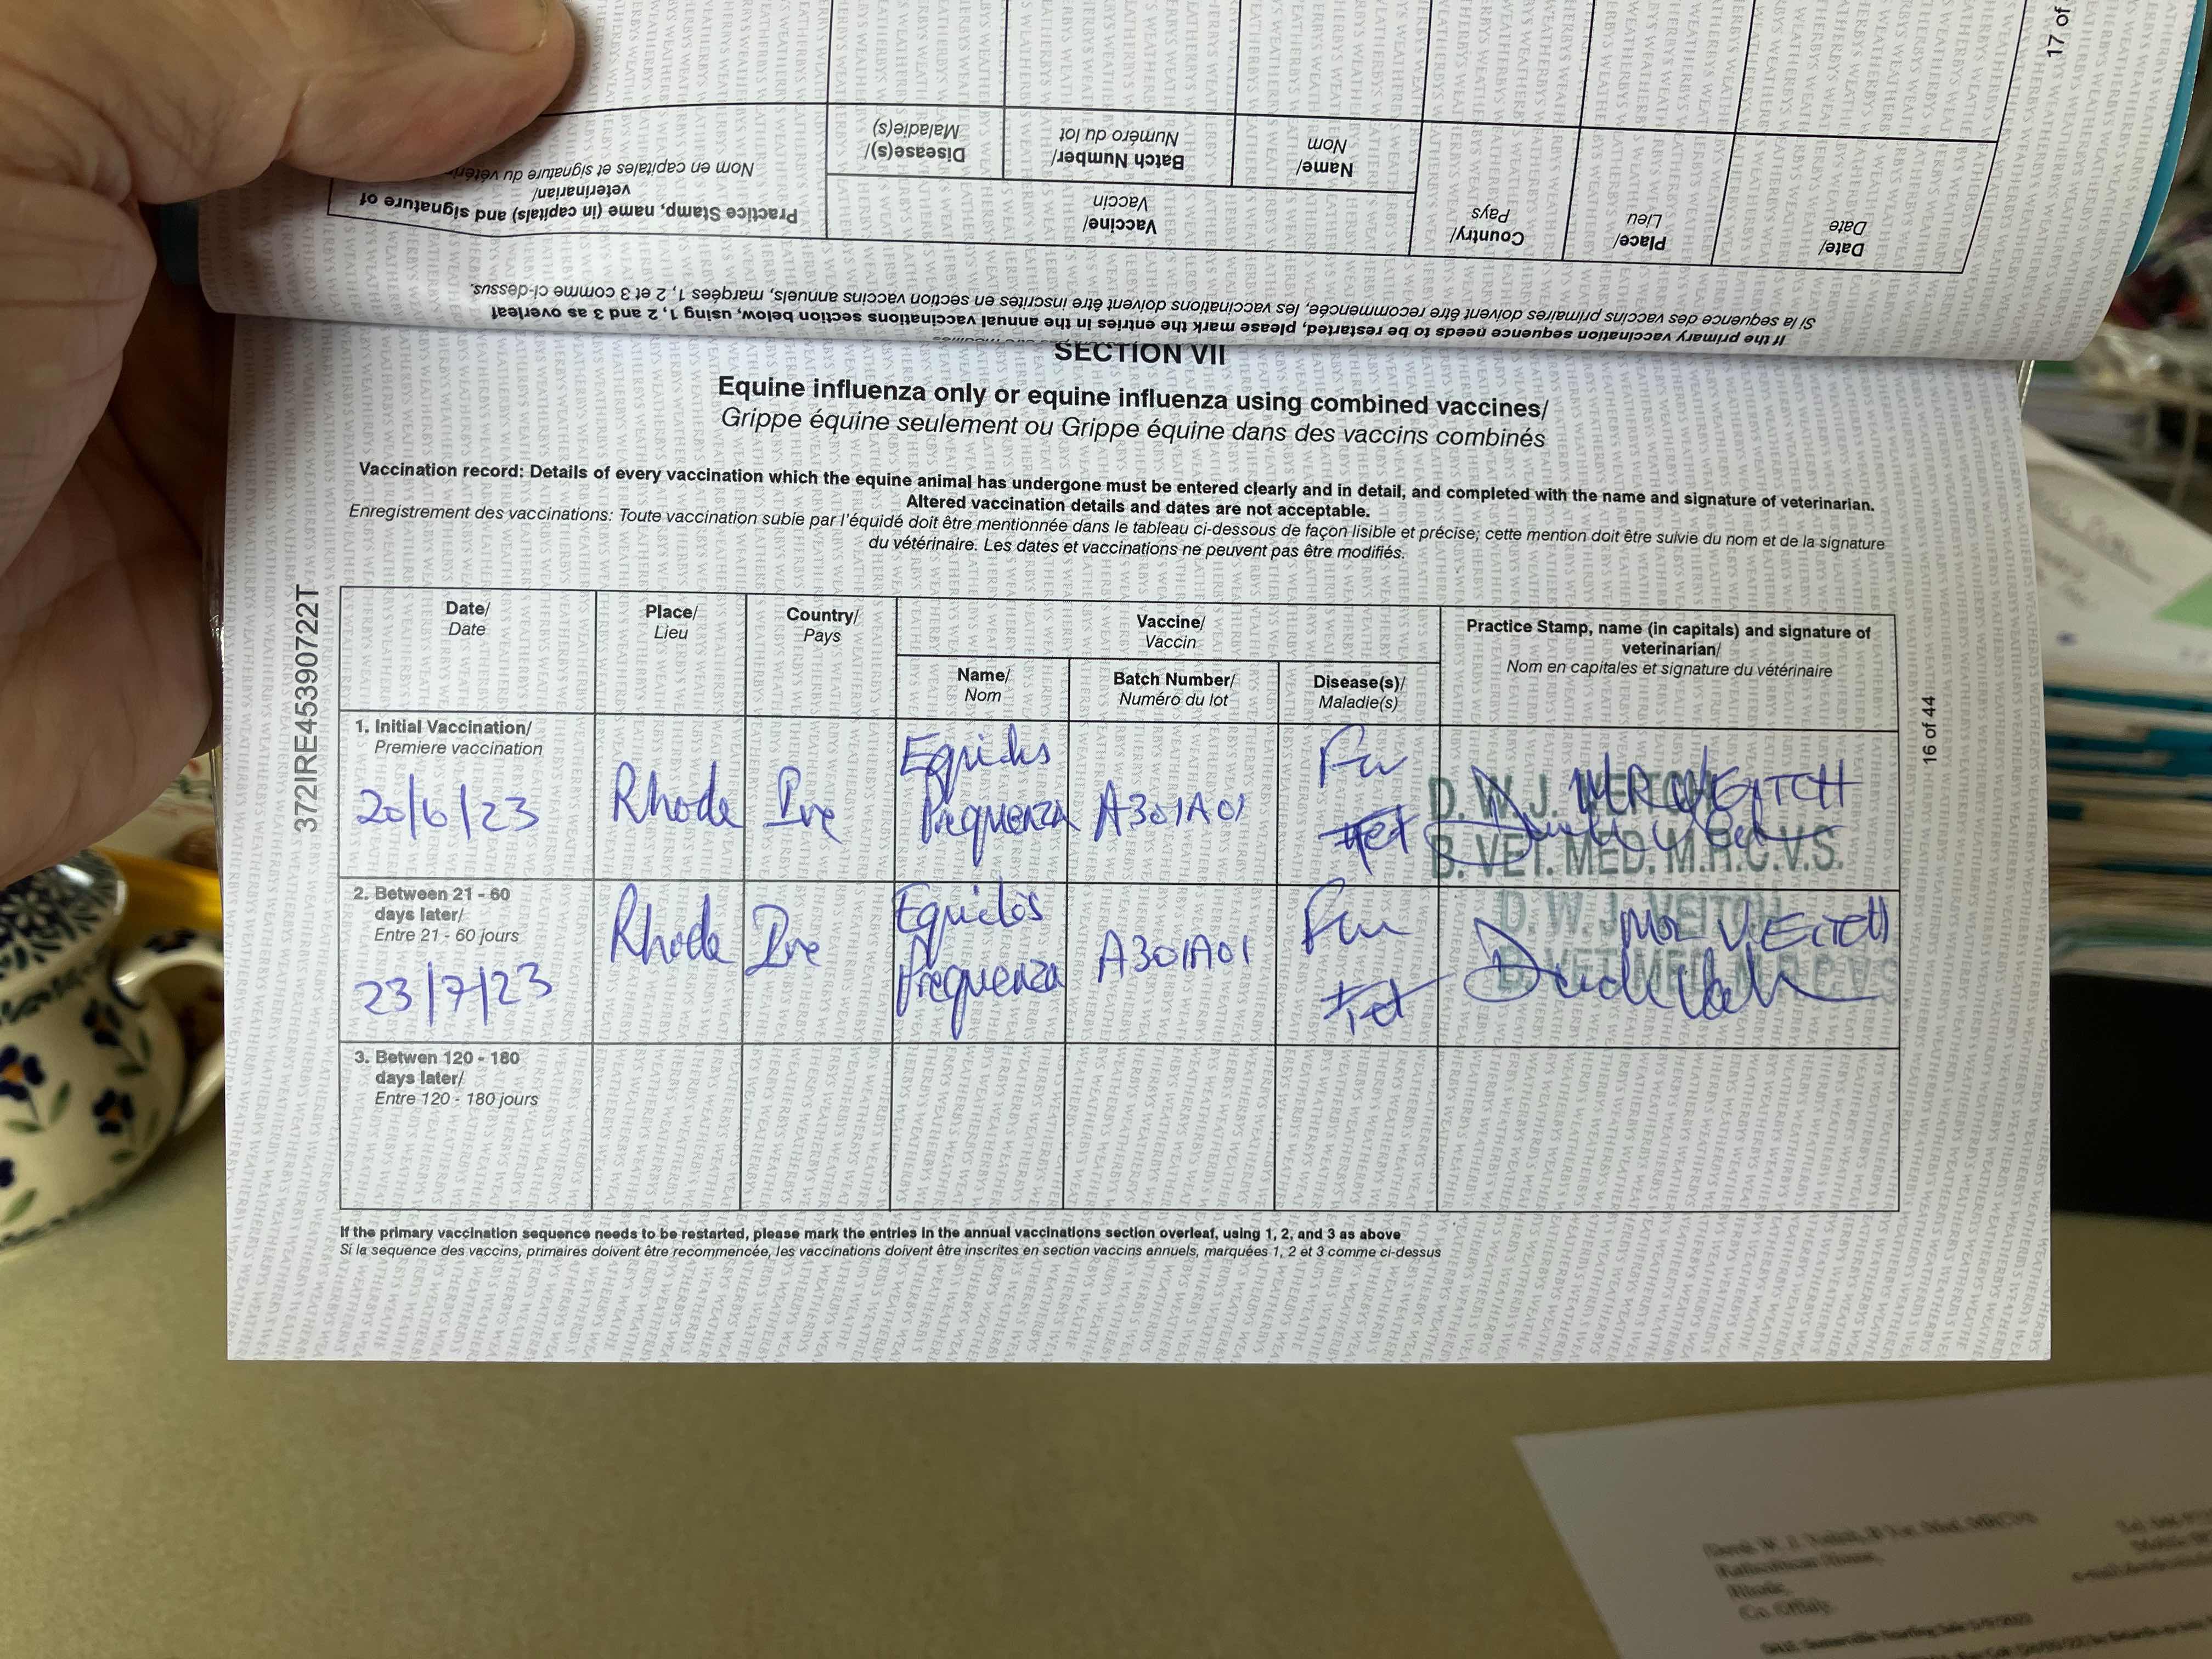 17 of
Practice Stamp, name (in capitals) and signature of
veterinarian/
Nom en capitales et signature du
Vaccine/
Vaccin
Disease(s)/
Maladie(s)
Batch Number/
Numéro du lot
Name/
Nom
Country/
Pays
Place/
Lieu
Date/
Date
If the primary vaccination sequence needs to be restarted, please mark the entries in the annual vaccinations section below, using 1, 2 and 3 as overleaf
Si la sequence des vaccins primaires doivent être recommencée, les vaccinations doivent être inscrites en section vaccins annuels, marqées 1, 2 et 3 comme ci-dessus.
SECTION VII
Equine influenza only or equine influenza using combined vaccines/
Grippe équine seulement ou Grippe équine dans des vaccins combinés
Vaccination record: Details of every vaccination which the equine animal has undergone must be entered clearly and in detail, and completed with the name and signature of veterinarian.
Altered vaccination details and dates are not acceptable.
Enregistrement des vaccinations: Toute vaccination subie par l'équidé doit être mentionnée dans le tableau ci-dessous de façon lisible et précise; cette mention doit être suivie du nom et de la signature
du vétérinaire. Les dates et vaccinations ne peuvent pas être modifiés.
372IRE453907722T
Date/
Date
Place/
Lieu
Country/
Pays
Vaccine/
Vaccin
Name/
Nom
Batch Number/
Numéro du lot
Disease(s)/
Maladie(s)
Practice Stamp, name (in capitals) and signature of
veterinarian/
Nom en capitales et signature du vétérinaire
1. Initial Vaccination/
Premiere vaccination
20/6/23
Rhode
Ire
Prequenza
A301A01
Tet
D. W. J. VEITCH
B. VET. MED. M.R.C.V.S.
2. Between 21 - 60
days later/
Entre 21 - 60 jours
23/7/23
Rhode
Ire
Prequenza
A301A01
Tet
D. W. J. VEITCH
B. VET. MED. M.R.C.V.S
VEITCH
3. Betwen 120 - 180
days later/
Entre 120 - 180 jours
16 of 44
If the primary vaccination sequence needs to be restarted, please mark the entries in the annual vaccinations section overleaf, using 1, 2, and 3 as above
Si la sequence des vaccins, primaires doivent être recommencée, les vaccinations doivent être inscrites en section vaccins annuels, marquées 1, 2 et 3 comme ci-dessus
Rhode,
Co. Offaly.